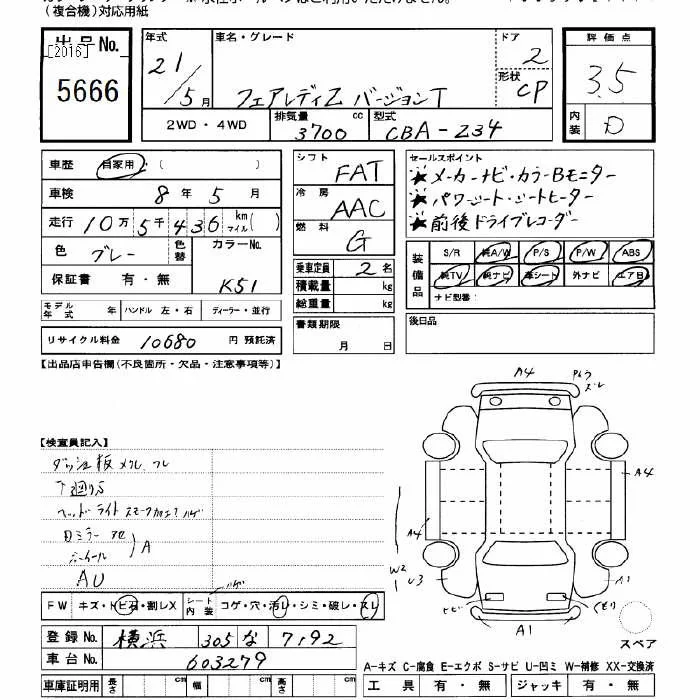 (複合機)対応用紙
出品No.
[2016]
5666
年式
21/5月
車名・グレード
フェアレディZ バージョンT
ドア
2
形状
CP
評価点
3.5
内装
D
2WD・4WD
排気量
3700
cc
型式
CBA-Z34
車歴
自家用
( )
車検
8年5月
走行
10万5千436
km
マイル
( )
色
グレー
色替
カラーNo.
K51
保証書
有・無
シフト
FAT
冷房
AAC
燃料
G
乗車定員
2名
積載量
kg
総重量
kg
セールスポイント
★メーカーナビ・カラーBモニター
★パワーシート・シートヒーター
★前後ドライブレコーダー
装備品
S/R
純A/W
P/S
P/W
ABS
純TV
純ナビ
革シート
外ナビ
エアB
ナビ型番:
モデル年式
年
ハンドル 左・右
ディーラー・並行
リサイクル料金
10680
円 預託済
書類期限
月 日
後日品
【出品店申告欄(不良箇所・欠品・注意事項等)】
【検査員記入】
ダッシュ板 メクレ
下廻りS
ヘッドライト
Dミラー
ホイール
A
AU
FW
キズ・トビ石・割レX
シート
内装
コゲ・穴・汚レ・シミ・破レ・スレ
ハゲ
A4
ズレ
A4
A4
W2
U3
A1
トビ
A1
くもり
スペア
登録No.
横浜
305
な
7192
車台No.
603279
A-キズ C-腐食 E-エクボ S-サビ U-凹ミ W-補修 XX-交換済
車庫証明用
長さ
cm
幅
cm
高さ
cm
工具
有・無
ジャッキ
有・無